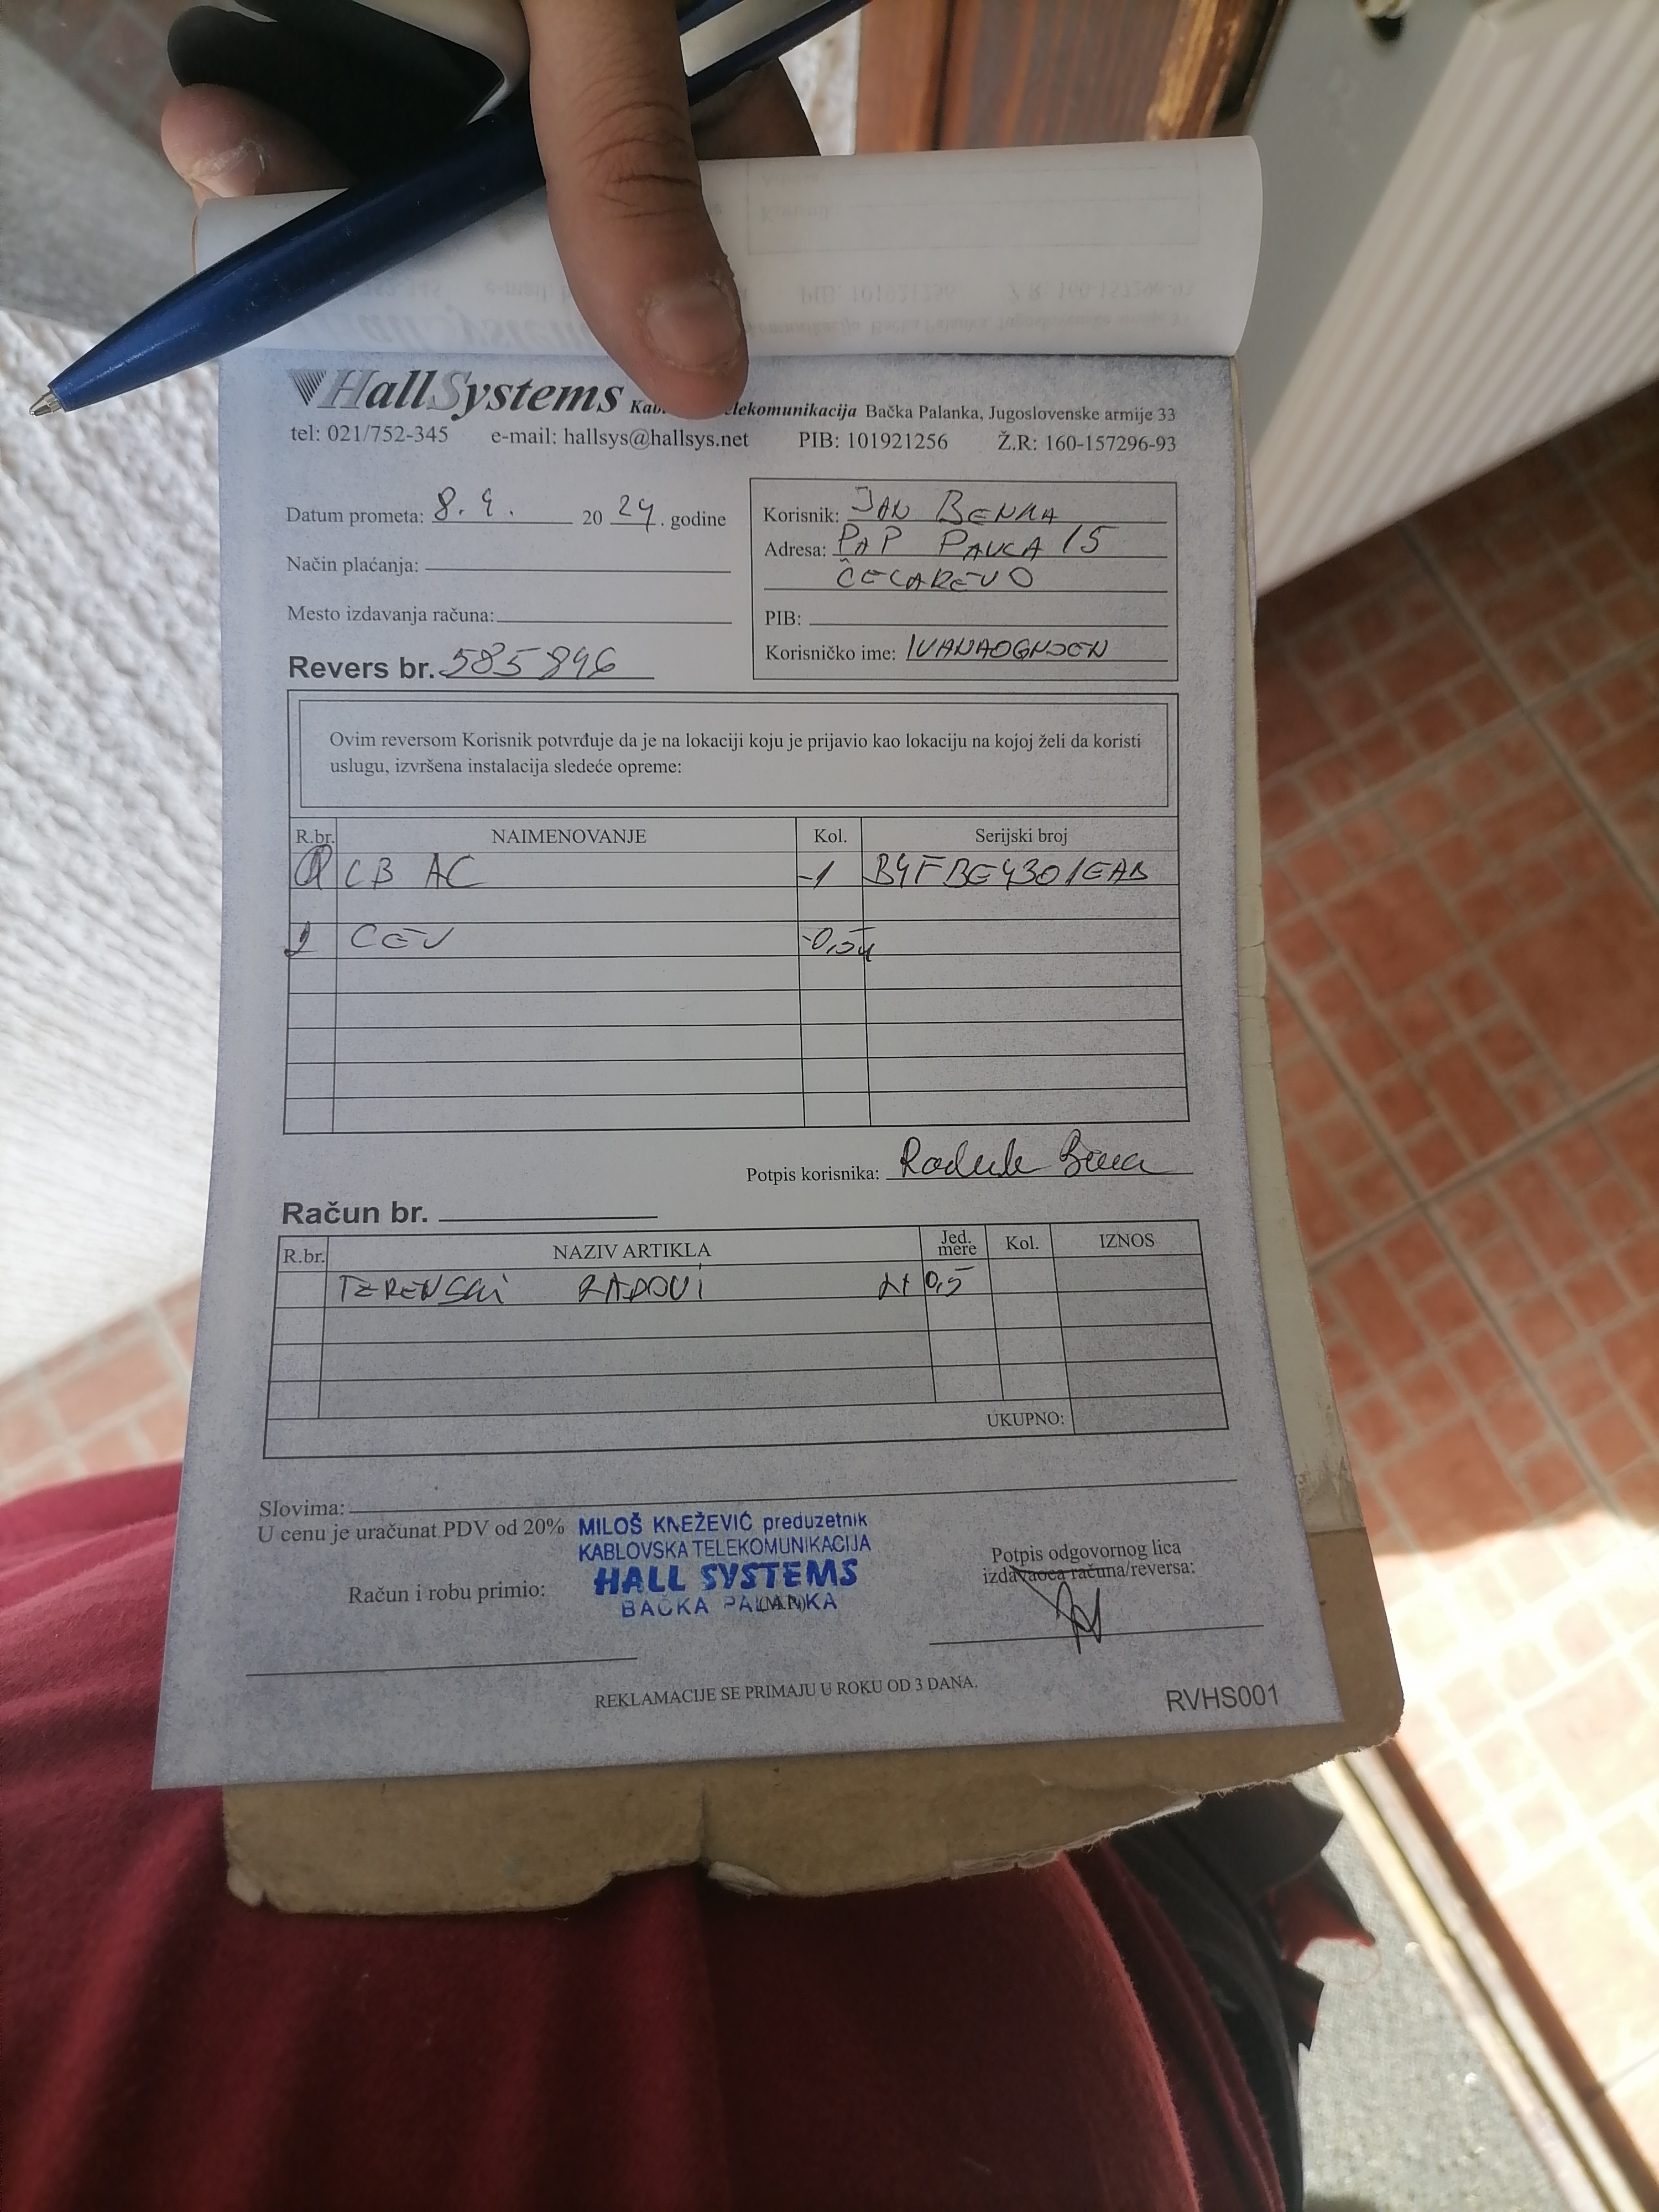 HallSystems elekomunikacija Bačka Palanka, Jugoslovenske armije 33
tel: 021/752-345 e-mail: hallsys@hallsys.net PIB: 101921256 Ž.R: 160-157296-93
Datum prometa: 8. 4. 20 24. godine
Način plaćanja:
Mesto izdavanja računa:
Revers br. 585896
Korisnik: JAN BENKA
Adresa: PAP PAVLA 15
ČELAREVO
PIB:
Korisničko ime: IVANAOGNJEN
Ovim reversom Korisnik potvrđuje da je na lokaciji koju je prijavio kao lokaciju na kojoj želi da koristi
uslugu, izvršena instalacija sledeće opreme:
R.br. NAIMENOVANJE Kol. Serijski broj
1 LB AC -1 B4FBE4301EAB
2 CEV
Potpis korisnika:
Račun br.
R.br. NAZIV ARTIKLA Jed. mere Kol. IZNOS
TERENSKI RADOVI 0,5
UKUPNO:
Slovima:
U cenu je uračunat PDV od 20%
MILOŠ KNEŽEVIĆ preduzetnik
KABLOVSKA TELEKOMUNIKACIJA
HALL SYSTEMS
BAČKA PALANKA
(M.P.)
Račun i robu primio:
Potpis odgovornog lica
izdavaoca računa/reversa:
REKLAMACIJE SE PRIMAJU U ROKU OD 3 DANA.
RVHS001